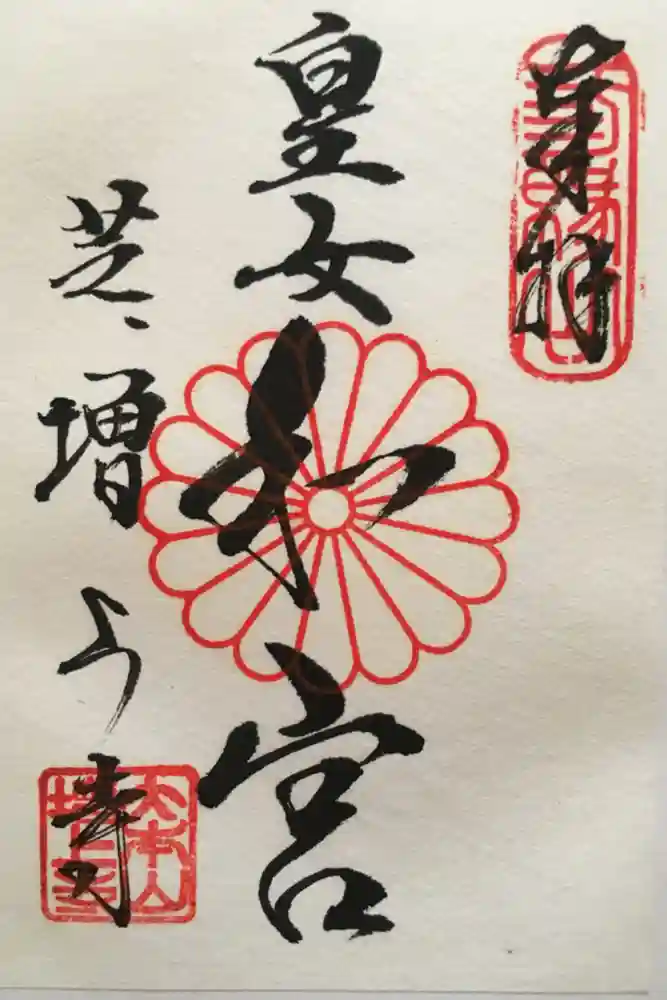 奉拝
皇女和宮
芝、増上寺
大本山増上寺